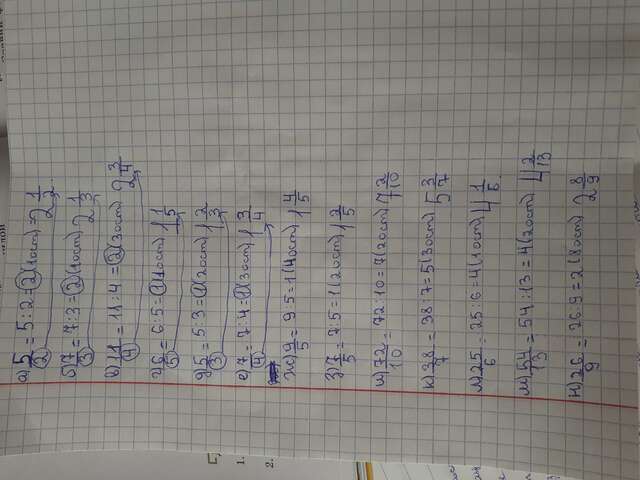 а) 5/2 = 5:2=2(1ост) = 2 1/2
б) 7/3 = 7:3=2(1ост) 2 1/3
в) 11/4 = 11:4 =2(3ост) 2 3/4
г) 6/5 = 6:5=1(1ост) 1 1/5
д) 5/3 = 5:3=1(2ост) 1 2/3
е) 7/4 = 7:4=1(3ост) 1 3/4
ж) 9/5 = 9:5=1(4ост) 1 4/5
з) 7/5 = 7:5=1(2ост) 1 2/5
и) 72/10 = 72:10=7(2ост) 7 2/10
к) 38/7 = 38:7=5(3ост) 5 3/7
л) 25/6 = 25:6=4(1ост) 4 1/6.
м) 54/13 = 54:13=4(2ост) 4 2/13
н) 26/9 = 26:9=2(8ост) 2 8/9
1.
2.